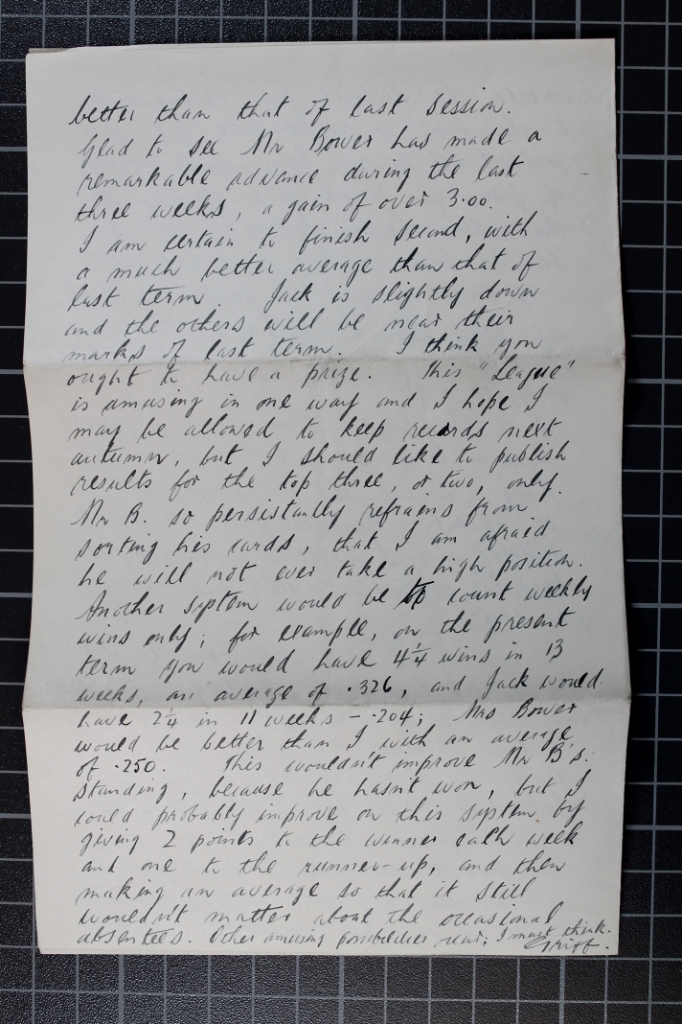 better than that of last session.
Glad to see Mr Bower has made a
remarkable advance during the last
three weeks, a gain of over 3.00.
I am certain to finish second, with
a much better average than that of
last term. Jack is slightly down
and the others will be near their
marks of last term. I think you
ought to have a prize. This "League"
is amusing in one way and I hope I
may be allowed to keep records next
autumn, but I should like to publish
results for the top three, or two, only.
Mr B. so persistantly refrains from
sorting his cards, that I am afraid
he will not ever take a high position.
Another system would be to count weekly
wins only; for example, on the present
term you would have 4¼ wins in 13
weeks, an average of .326, and Jack would
have 2¼ in 11 weeks – .204; Mrs Bower
would be better than I with an average
of .250. This wouldn't improve Mr B's.
standing, because he hasn't won, but I
could probably improve on this system by
giving 2 points to the winner each week
and one to the runner-up, and then
making an average so that it still
wouldn't matter about the occasional
absentees. Other amusing possibilities occur; I must think.
Griff.